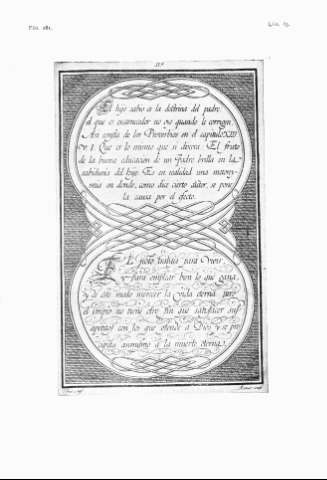 El hijo sabio es la doctrina del padre,
el que es escarnecedor no oye quando le corrigen.
Asi consta de los Proverbios en el capitulo XIII
v. 1. Que es lo mismo que si dixera: El fruto
de la buena educación de un Padre brilla en la
sabiduría del hijo. Es en realidad una metony-
mia en donde, como dice cierto autor, se pone
la causa por el efecto.
El justo trabaja para vivir
y para emplear bien lo que gana
y de este modo merecer la vida eterna pero
el impio no tiene otro fin que satisfacer sus
apetitos con los que ofende a Dios y se pre
cipita asimismo a la muerte eterna.